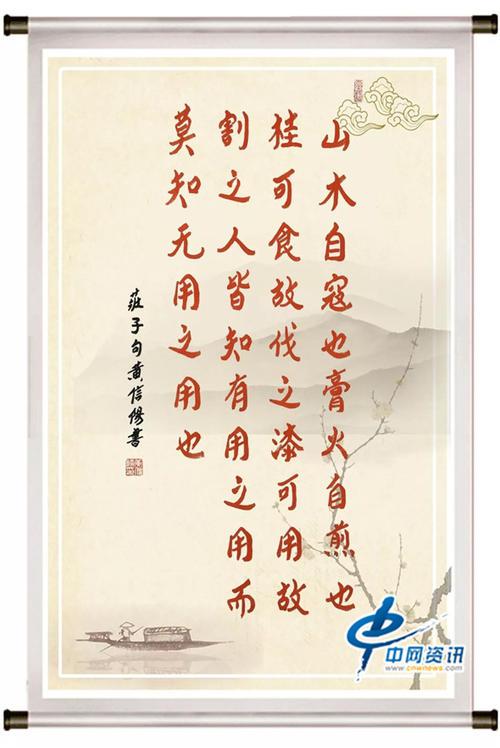 山木自寇也膏火自煎也
桂可食故伐之漆可用故
割之人皆知有用之用而
莫知无用之用也
莊子句黄信修書
中网资讯
www.cnwnews.com